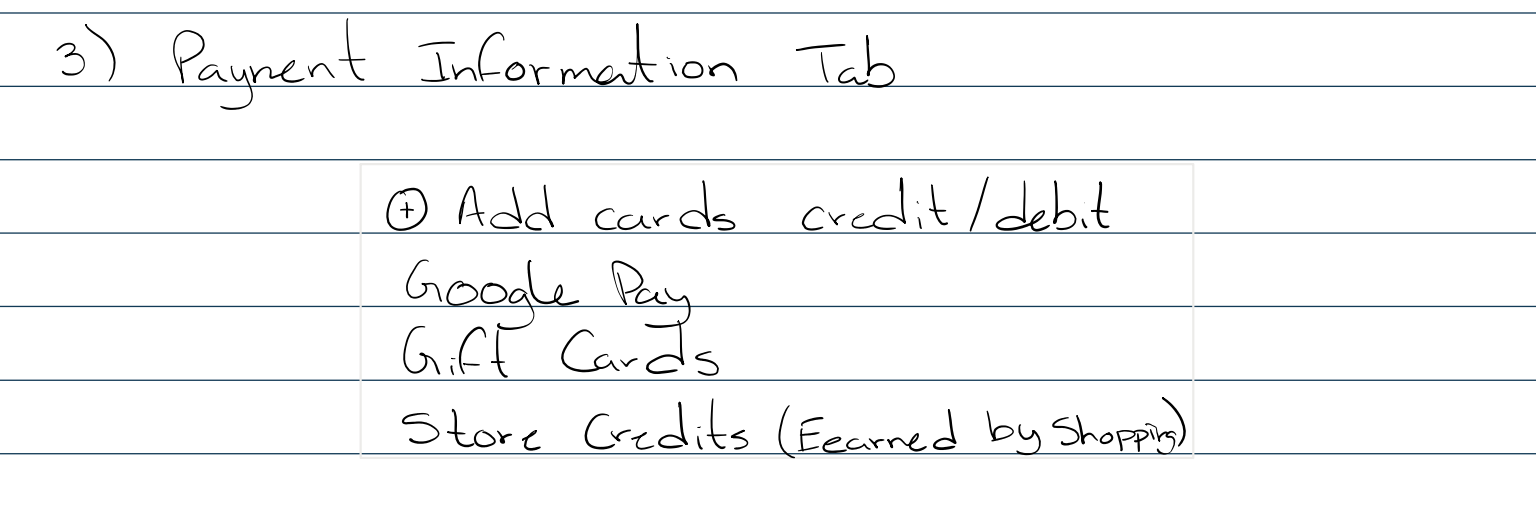 3) Payment Information Tab
⊕ Add cards credit/debit
Google Pay
Gift Cards
Store Credits (Eearned by Shopping)